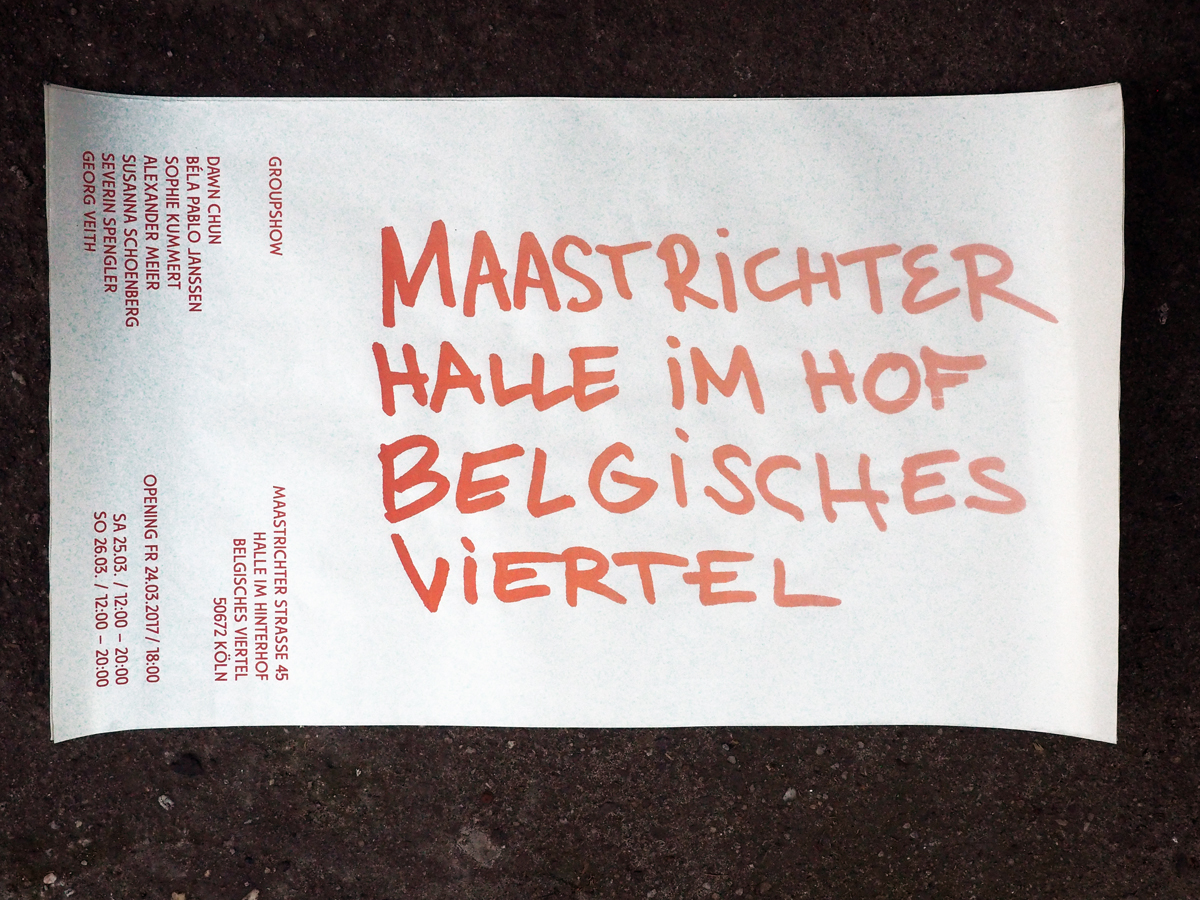 MAASTRiCHTER
HALLE iM HOF
BELGiSCHES
ViERTEL
GROUPSHOW
DAWN CHUN
BÉLA PABLO JANSSEN
SOPHIE KUMMERT
ALEXANDER MEIER
SUSANNA SCHOENBERG
SEVERIN SPENGLER
GEORG VEITH
MAASTRICHTER STRASSE 45
HALLE IM HINTERHOF
BELGISCHES VIERTEL
50672 KÖLN
OPENING FR 24.03.2017 / 18:00
SA 25.03. / 12:00 – 20:00
SO 26.03. / 12:00 – 20:00